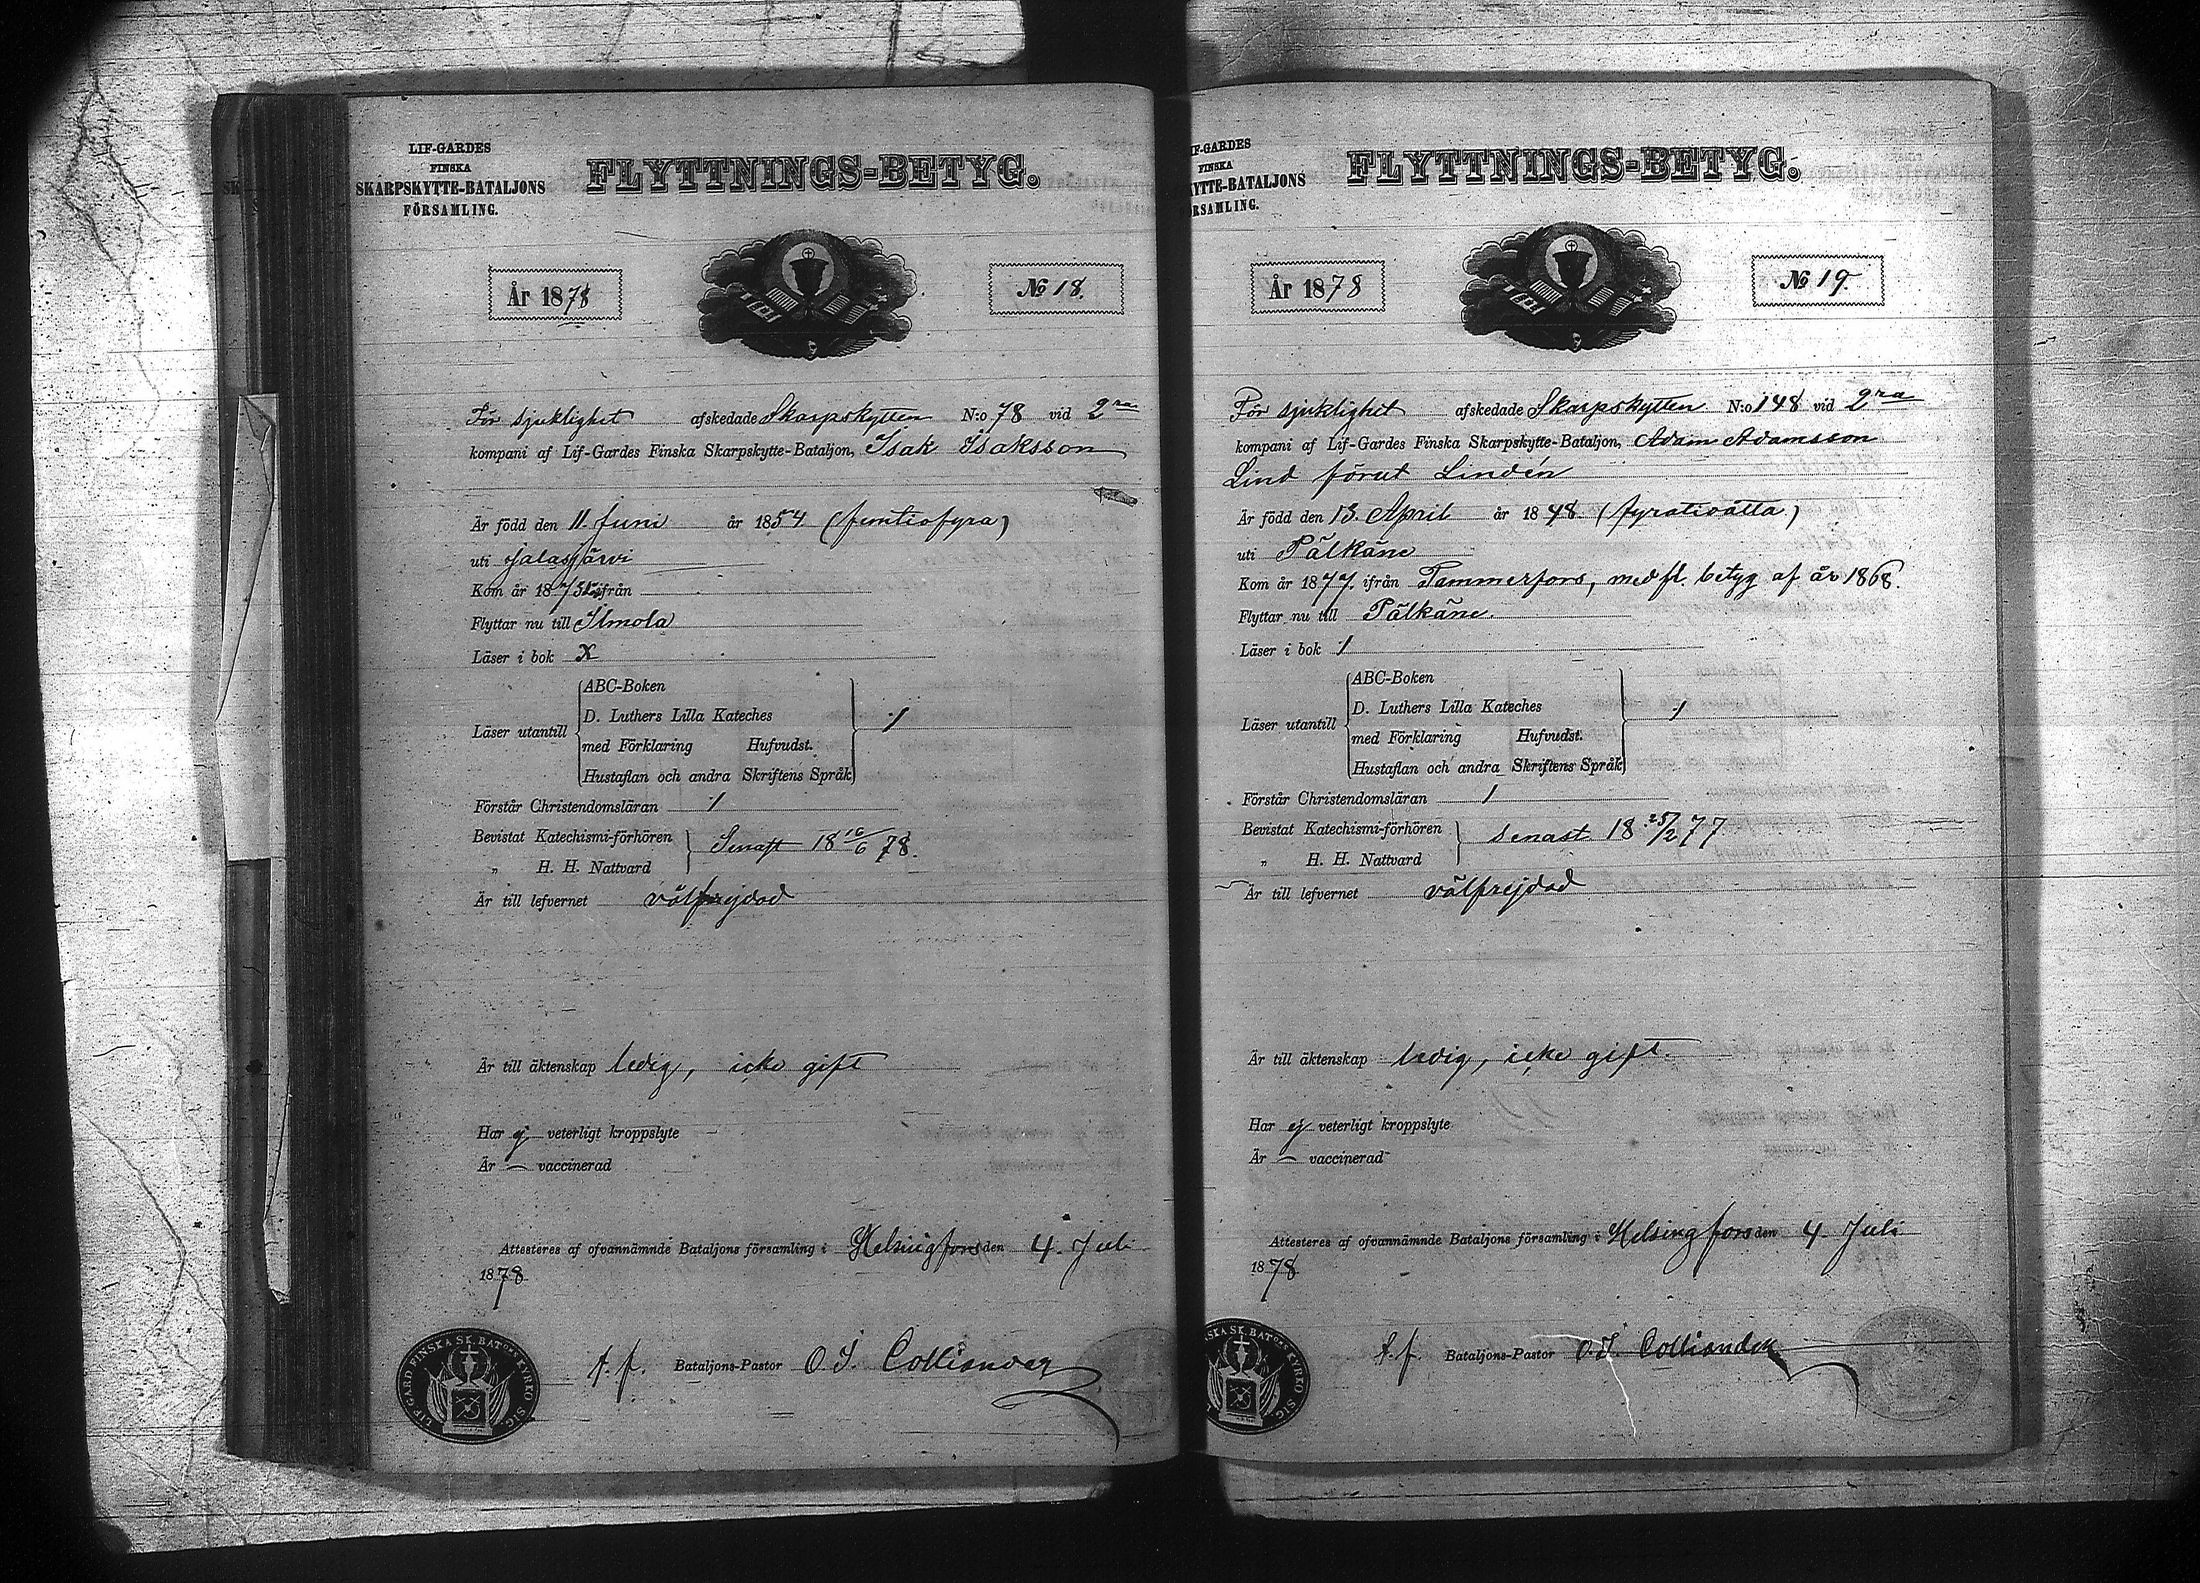 LIF-GARDES
FINSKA
SKARPSKYTTE-BATALJONS
FÖRSAMLING.
FLYTTNINGS-BETYG.
År 1878
No 18.
För sjuklighet afskedade Skarpskytten N:o 78 vid 2ra
kompani af Lif-Gardes Finska Skarpskytte-Bataljon, Isak Isaksson
Är född den 11. Juni år 1854 (femtiofyra)
uti Jalasjärvi
Kom år 187 ifrån
Flyttar nu till Ilmola
Läser i bok X
Läser utantill
ABC-Boken
D. Luthers Lilla Kateches
med Förklaring Hufvudst.
Hustaflan och andra Skriftens Språk
1
Förstår Christendomsläran 1
Bevistat Katechismi-förhören
„ H. H. Nattvard
Senast 18 16/6 78.
Är till lefvernet välfrejdad
Är till äktenskap ledig, icke gift
Har ej veterligt kroppslyte
Är — vaccinerad
Attesteres af ofvannämnde Bataljons församling i Helsingfors den 4. Juli
1878
A. f. Bataljons-Pastor O. I. Colliander
LIF GARD FINSKA SK. BATons KYRKO SIG.
IF-GARDES
FINSKA
YTTE-BATALJONS
RSAMLING.
FLYTTNINGS-BETYG.
År 1878
No 19
För sjuklighet afskedade Skarpskytten N:o 148 vid 2ra
kompani af Lif-Gardes Finska Skarpskytte-Bataljon, Adam Adamsson
Lind förut Lindén
Är född den 13. April år 1848 (fyratioåtta)
uti Pälkäne
Kom år 1877. ifrån Tammerfors, med fl. betyg af år 1868.
Flyttar nu till Pälkäne.
Läser i bok 1
Läser utantill
ABC-Boken
D. Luthers Lilla Kateches
med Förklaring Hufvudst.
Hustaflan och andra Skriftens Språk
1
Förstår Christendomsläran 1
Bevistat Katechismi-förhören
„ H. H. Nattvard
senast 18 25/2 77
Är till lefvernet välfrejdad
Är till äktenskap ledig, icke gift.
Har ej veterligt kroppslyte
Är — vaccinerad
Attesteres af ofvannämnde Bataljons församling i Helsingfors den 4. Juli
1878
A. f. Bataljons-Pastor O. I. Colliander
SKA SK. BATons KYRKO SIG.